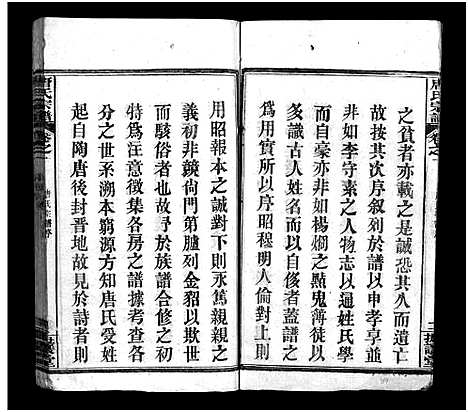 之貧者亦載之是誠恐其久而遺亡
故按其次序叙列於譜以申孝享並
非如李守素之人物志以通姓氏學
而自豪亦非如楊烱之點鬼薄徒以
多識古人姓名而以自侈者蓋譜之
為用實所以序昭穆明人倫對上則
用昭報本之誠對下則永篤親親之
義初非競尚門第臚列金貂以欺世
而駭俗者也故予於譜合修之初
特為注意徵集各房之譜據考查各
分之世系溯本窮源方知唐氏受姓
起自陶唐後封晉地故見於詩者則
唐氏宗譜
卷之一
唐氏宗譜
卷之一